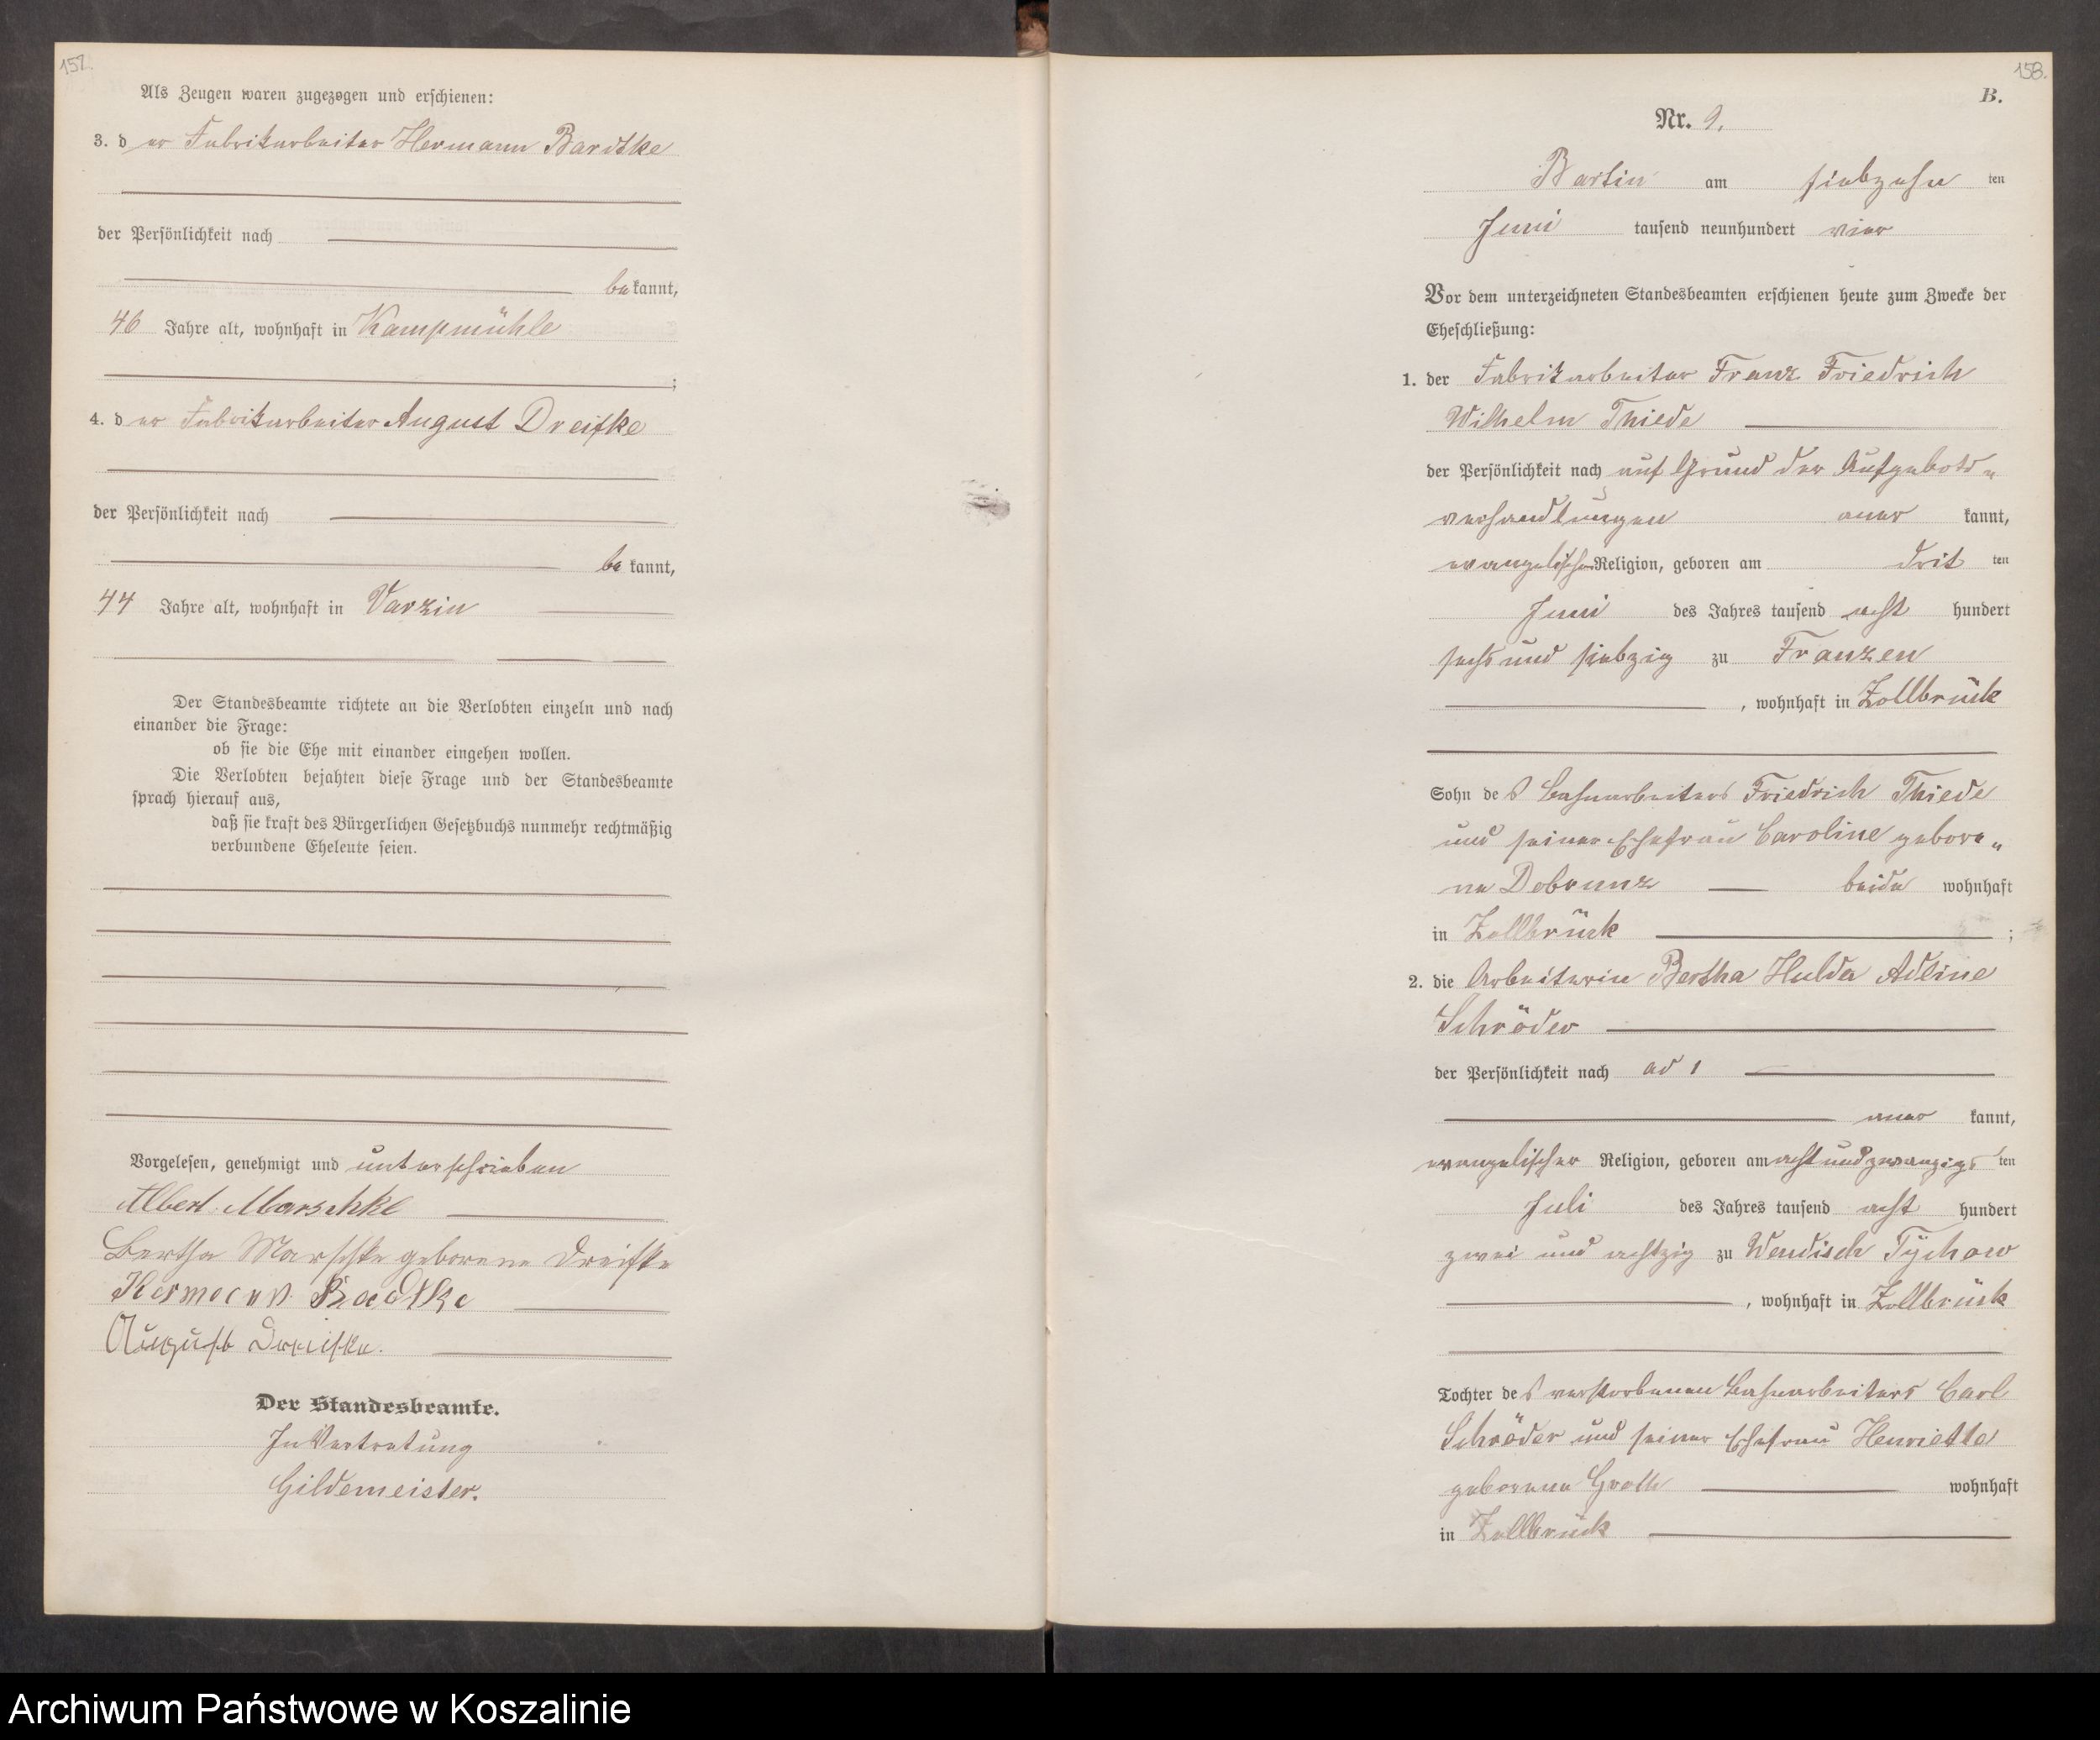 152.
Als Zeugen waren zugezogen und erschienen:
3. der Fabrikarbeiter Hermann Bardtke
der Persönlichkeit nach
bekannt,
46 Jahre alt, wohnhaft in Kampmühle
;
4. der Fabrikarbeiter August Dreifke
der Persönlichkeit nach
bekannt,
44 Jahre alt, wohnhaft in Varzin
Der Standesbeamte richtete an die Verlobten einzeln und nach
einander die Frage:
ob sie die Ehe mit einander eingehen wollen.
Die Verlobten bejahten diese Frage und der Standesbeamte
sprach hierauf aus,
daß sie kraft des Bürgerlichen Gesetzbuchs nunmehr rechtmäßig
verbundene Eheleute seien.
Vorgelesen, genehmigt und unterschrieben
Albert Marschke
Bertha Marschke geborene Dreifke
Hermann
August Dreifke.
Der Standesbeamte.
In Vertretung
Gildemeister.
153.
B.
Nr. 9.
Bartin am siebzehnten
Juni tausend neunhundert vier
Vor dem unterzeichneten Standesbeamten erschienen heute zum Zwecke der
Eheschließung:
1. der Fabrikarbeiter Franz Friedrich
Wilhelm Thiede
der Persönlichkeit nach auf Grund der Aufgebots-
verhandlungen anerkannt,
evangelischer Religion, geboren am dritten
Juni des Jahres tausend acht hundert
sechs und siebzig zu Franzen
, wohnhaft in Zollbrück
Sohn des Bahnarbeiters Friedrich Thiede
und seiner Ehefrau Caroline gebore-
ne Dobrunz beide wohnhaft
in Zollbrück ;
2. die Arbeiterin Bertha Hulda Adline
Schröder
der Persönlichkeit nach ad 1
anerkannt,
evangelischer Religion, geboren am achtundzwanzigsten
Juli des Jahres tausend acht hundert
zwei und achtzig zu Wendisch Tychow
, wohnhaft in Zollbrück
Tochter des verstorbenen Bahnarbeiters Carl
Schröder und seiner Ehefrau Henriette
geborene Groth wohnhaft
in Zollbrück
Archiwum Państwowe w Koszalinie